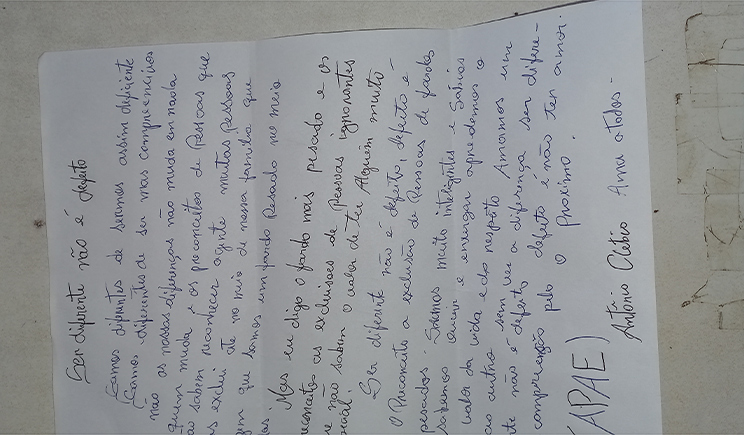 Ser diferente não é defeito
Somos difirentes de sermos assim deficiente
Somos diferentes de ser mas compreencivos
não as nossas diferenças não muda em nada
quem muda é os preconceitos de Pessoas que
ão sabem reconhecer agente muitas Pessoas
as exclui até no meio de nossa familia que
zem que somos um fardo Pesado no meio
las.
Mas eu digo o fardo mais pesado é os
reconceitos as exclusoes de Pessoas ignorantes
ue não sabem o valor de ter Alguém muito
Ser diferente não é defeito, defeito é
o Preconceito a exclusão de Pessoas de fardos
pesados. Somos muito inteligentes e Sábios
sabemos ouvir e enxergar aprendemos o
valor da vida e do respeito Amamos um
ao outro sem ver a diferença ser difere-
te não é defeito defeito é não ter amor.
compreenção pelo o Proximo.
(APAE) Antonio Clébio Ama a todos.